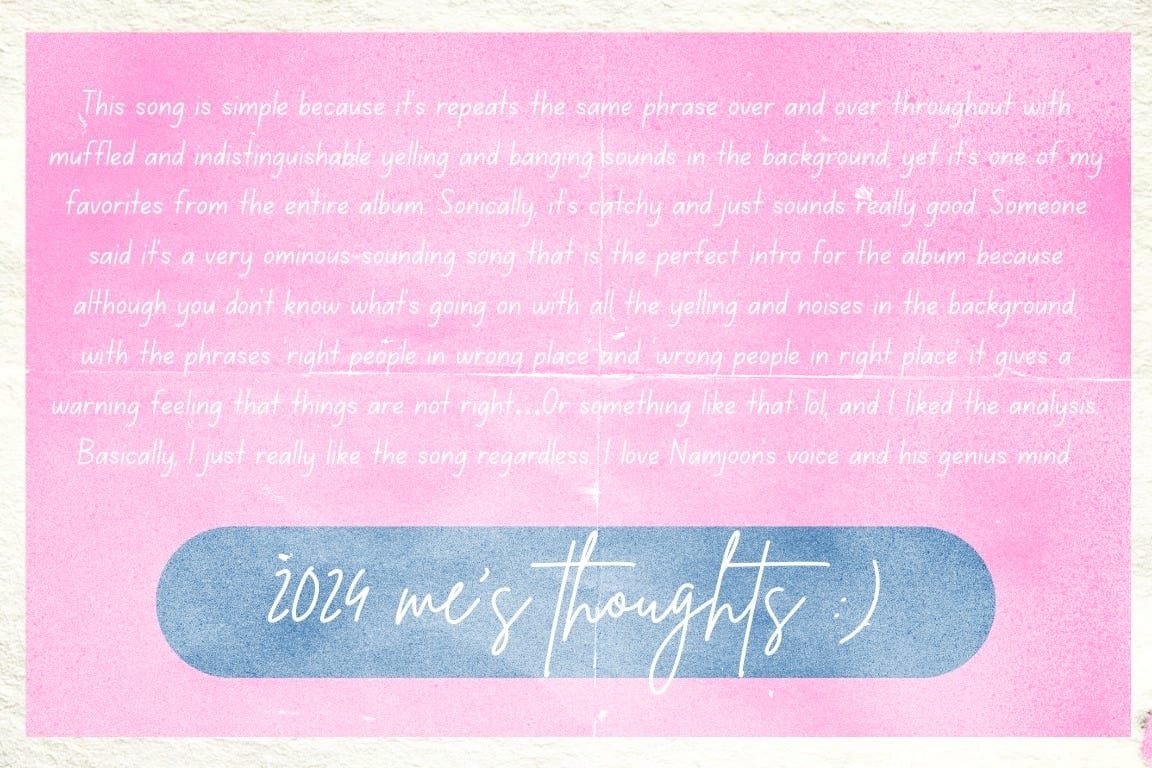 This song is simple because it's repeats the same phrase over and over throughout with
muffled and indistinguishable yelling and banging sounds in the background, yet it's one of my
favorites from the entire album. Sonically, it's catchy and just sounds really good. Someone
said it's a very ominous-sounding song that is the perfect intro for the album because
although you don't know what's going on with all the yelling and noises in the background,
with the phrases 'right people in wrong place' and 'wrong people in right place' it gives a
warning feeling that things are not right...Or something like that lol, and I liked the analysis.
Basically, I just really like the song regardless. I love Namjoon's voice and his genius mind.
2024 me's thoughts :)